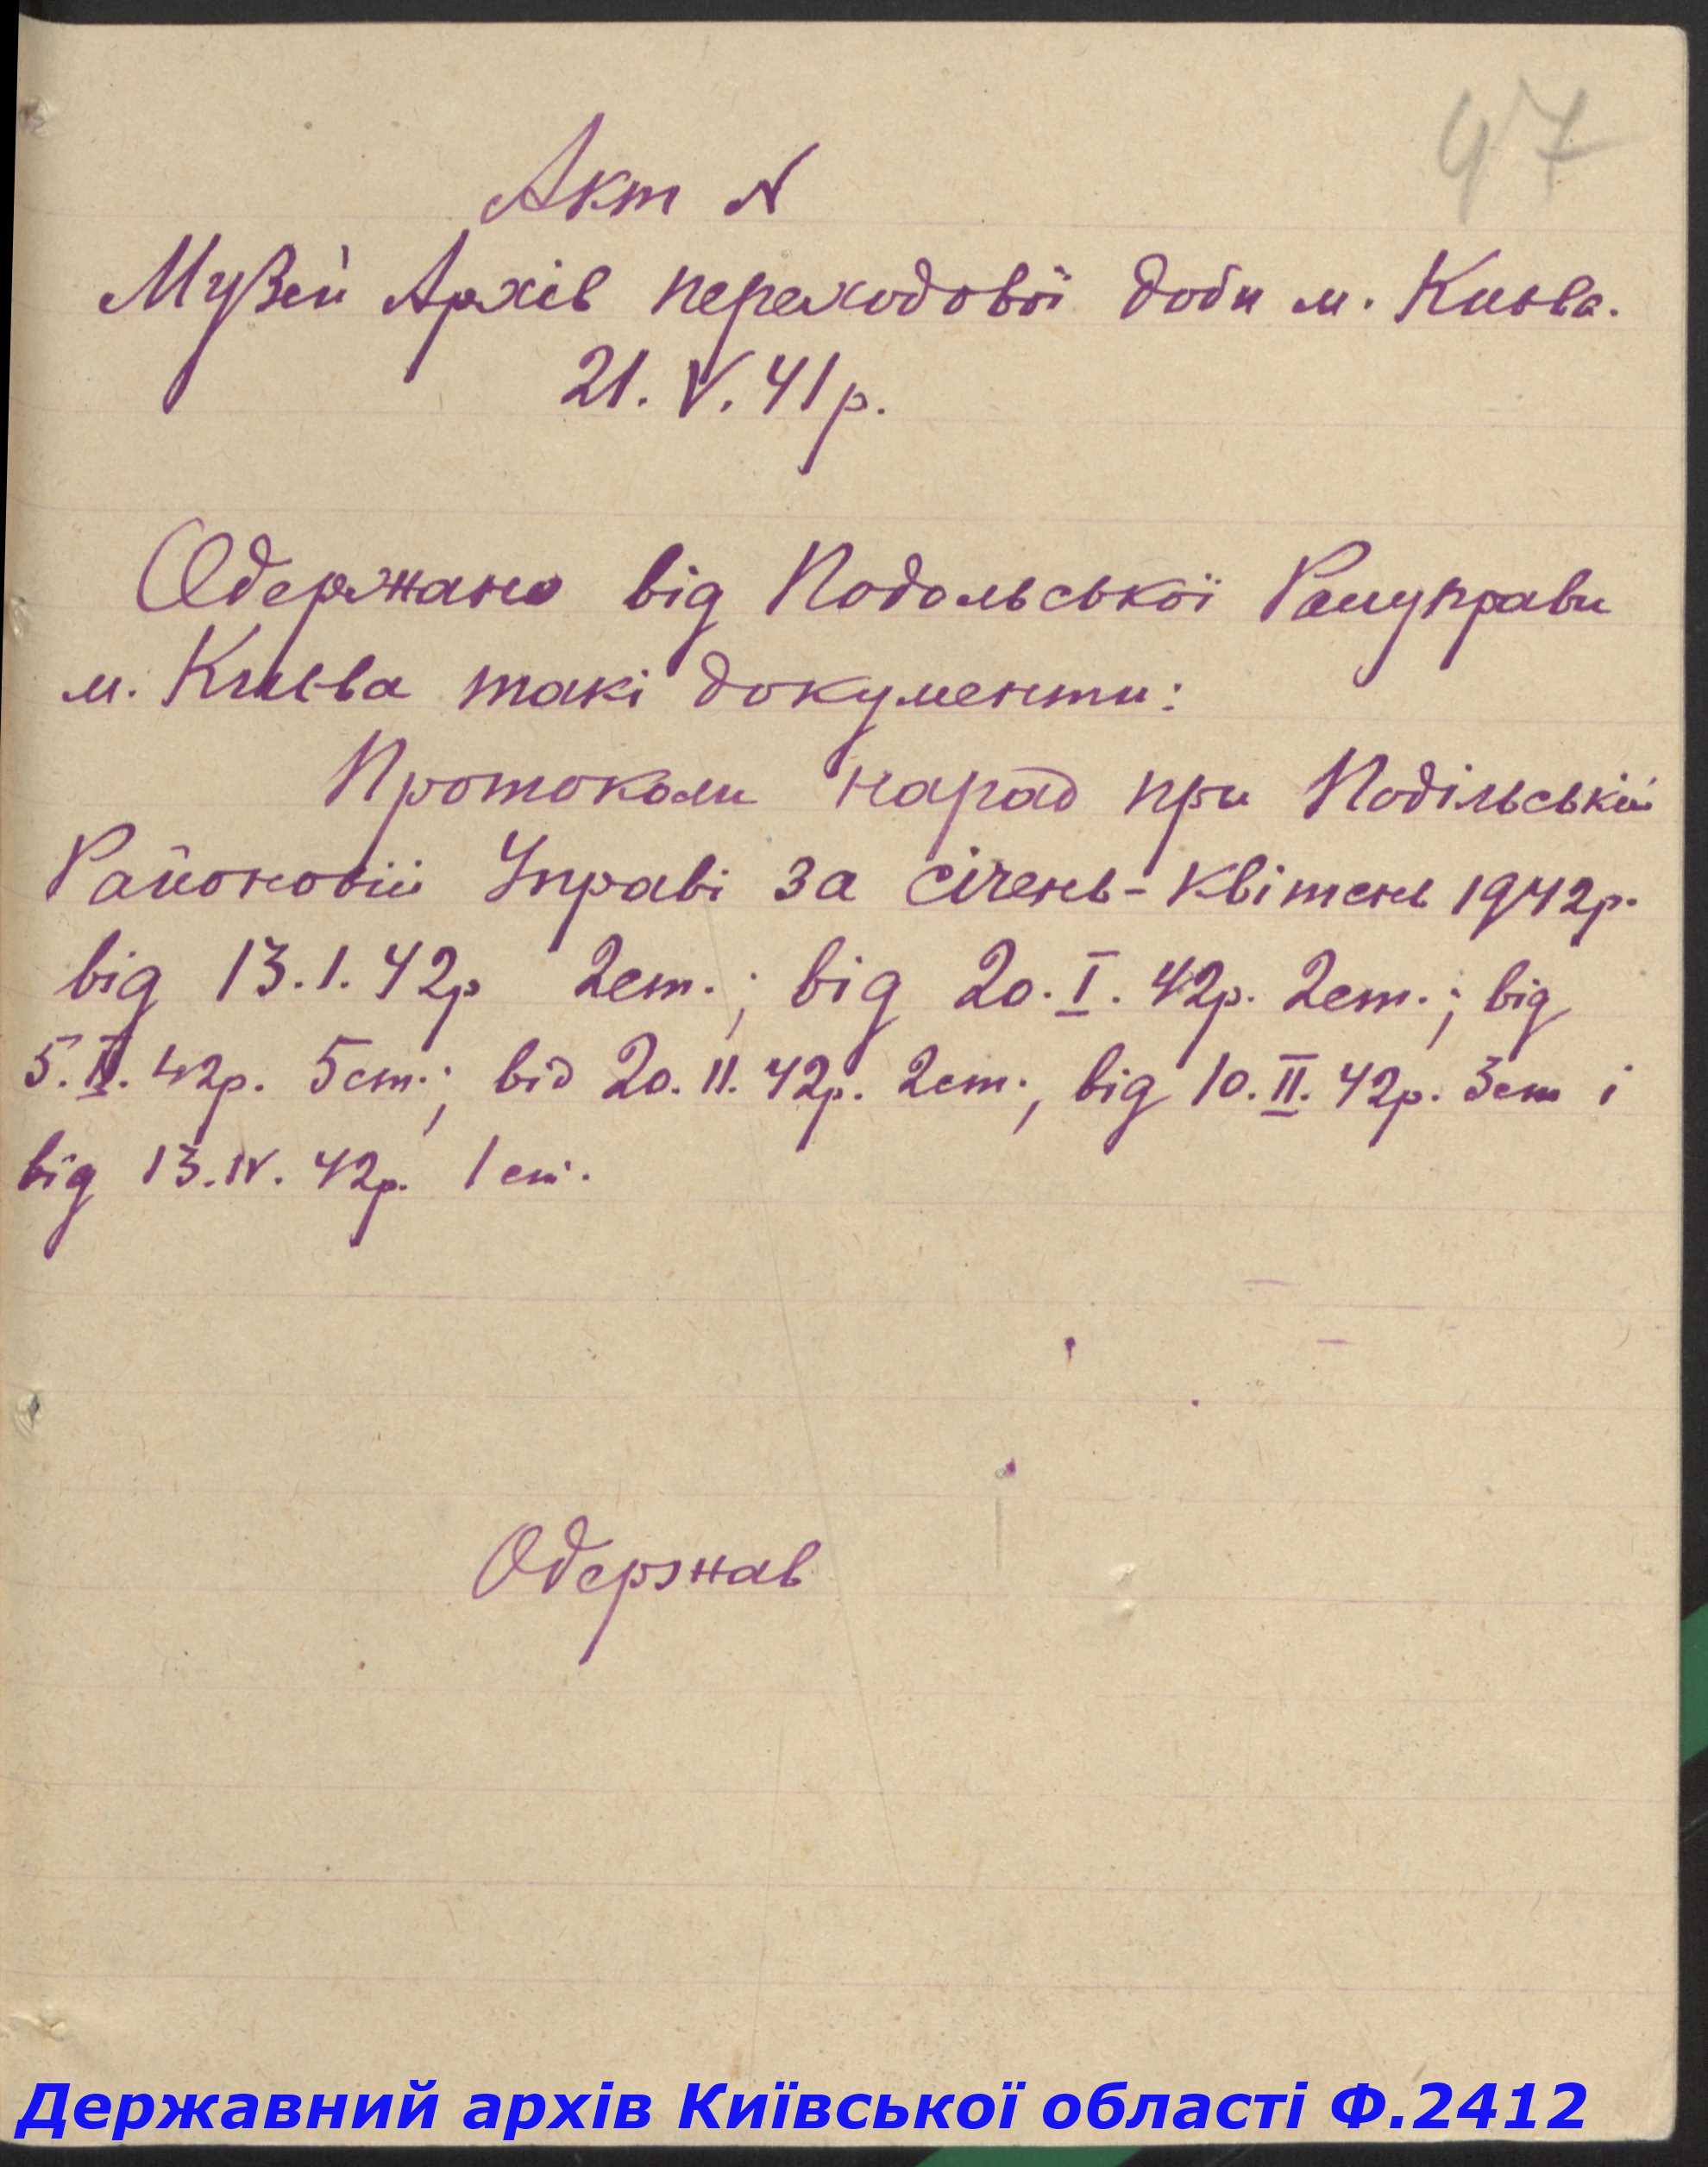 47
Акт №
Музей Архів переходової доби м. Києва.
21. V. 41р.
Одержано від Подольської Райуправи
м. Києва такі документи:
Протоколи нарад при Подільській
Районовій Управі за січень-квітень 1942р.
від 13.I.42р 2ст.; від 20.I.42р. 2ст.; від
5.II.42р. 5ст.; від 20.II.42р. 2ст., від 10.II.42р. 3ст і
від 13.IV.42р. 1ст.
Одержав
Державний архів Київської області Ф.2412